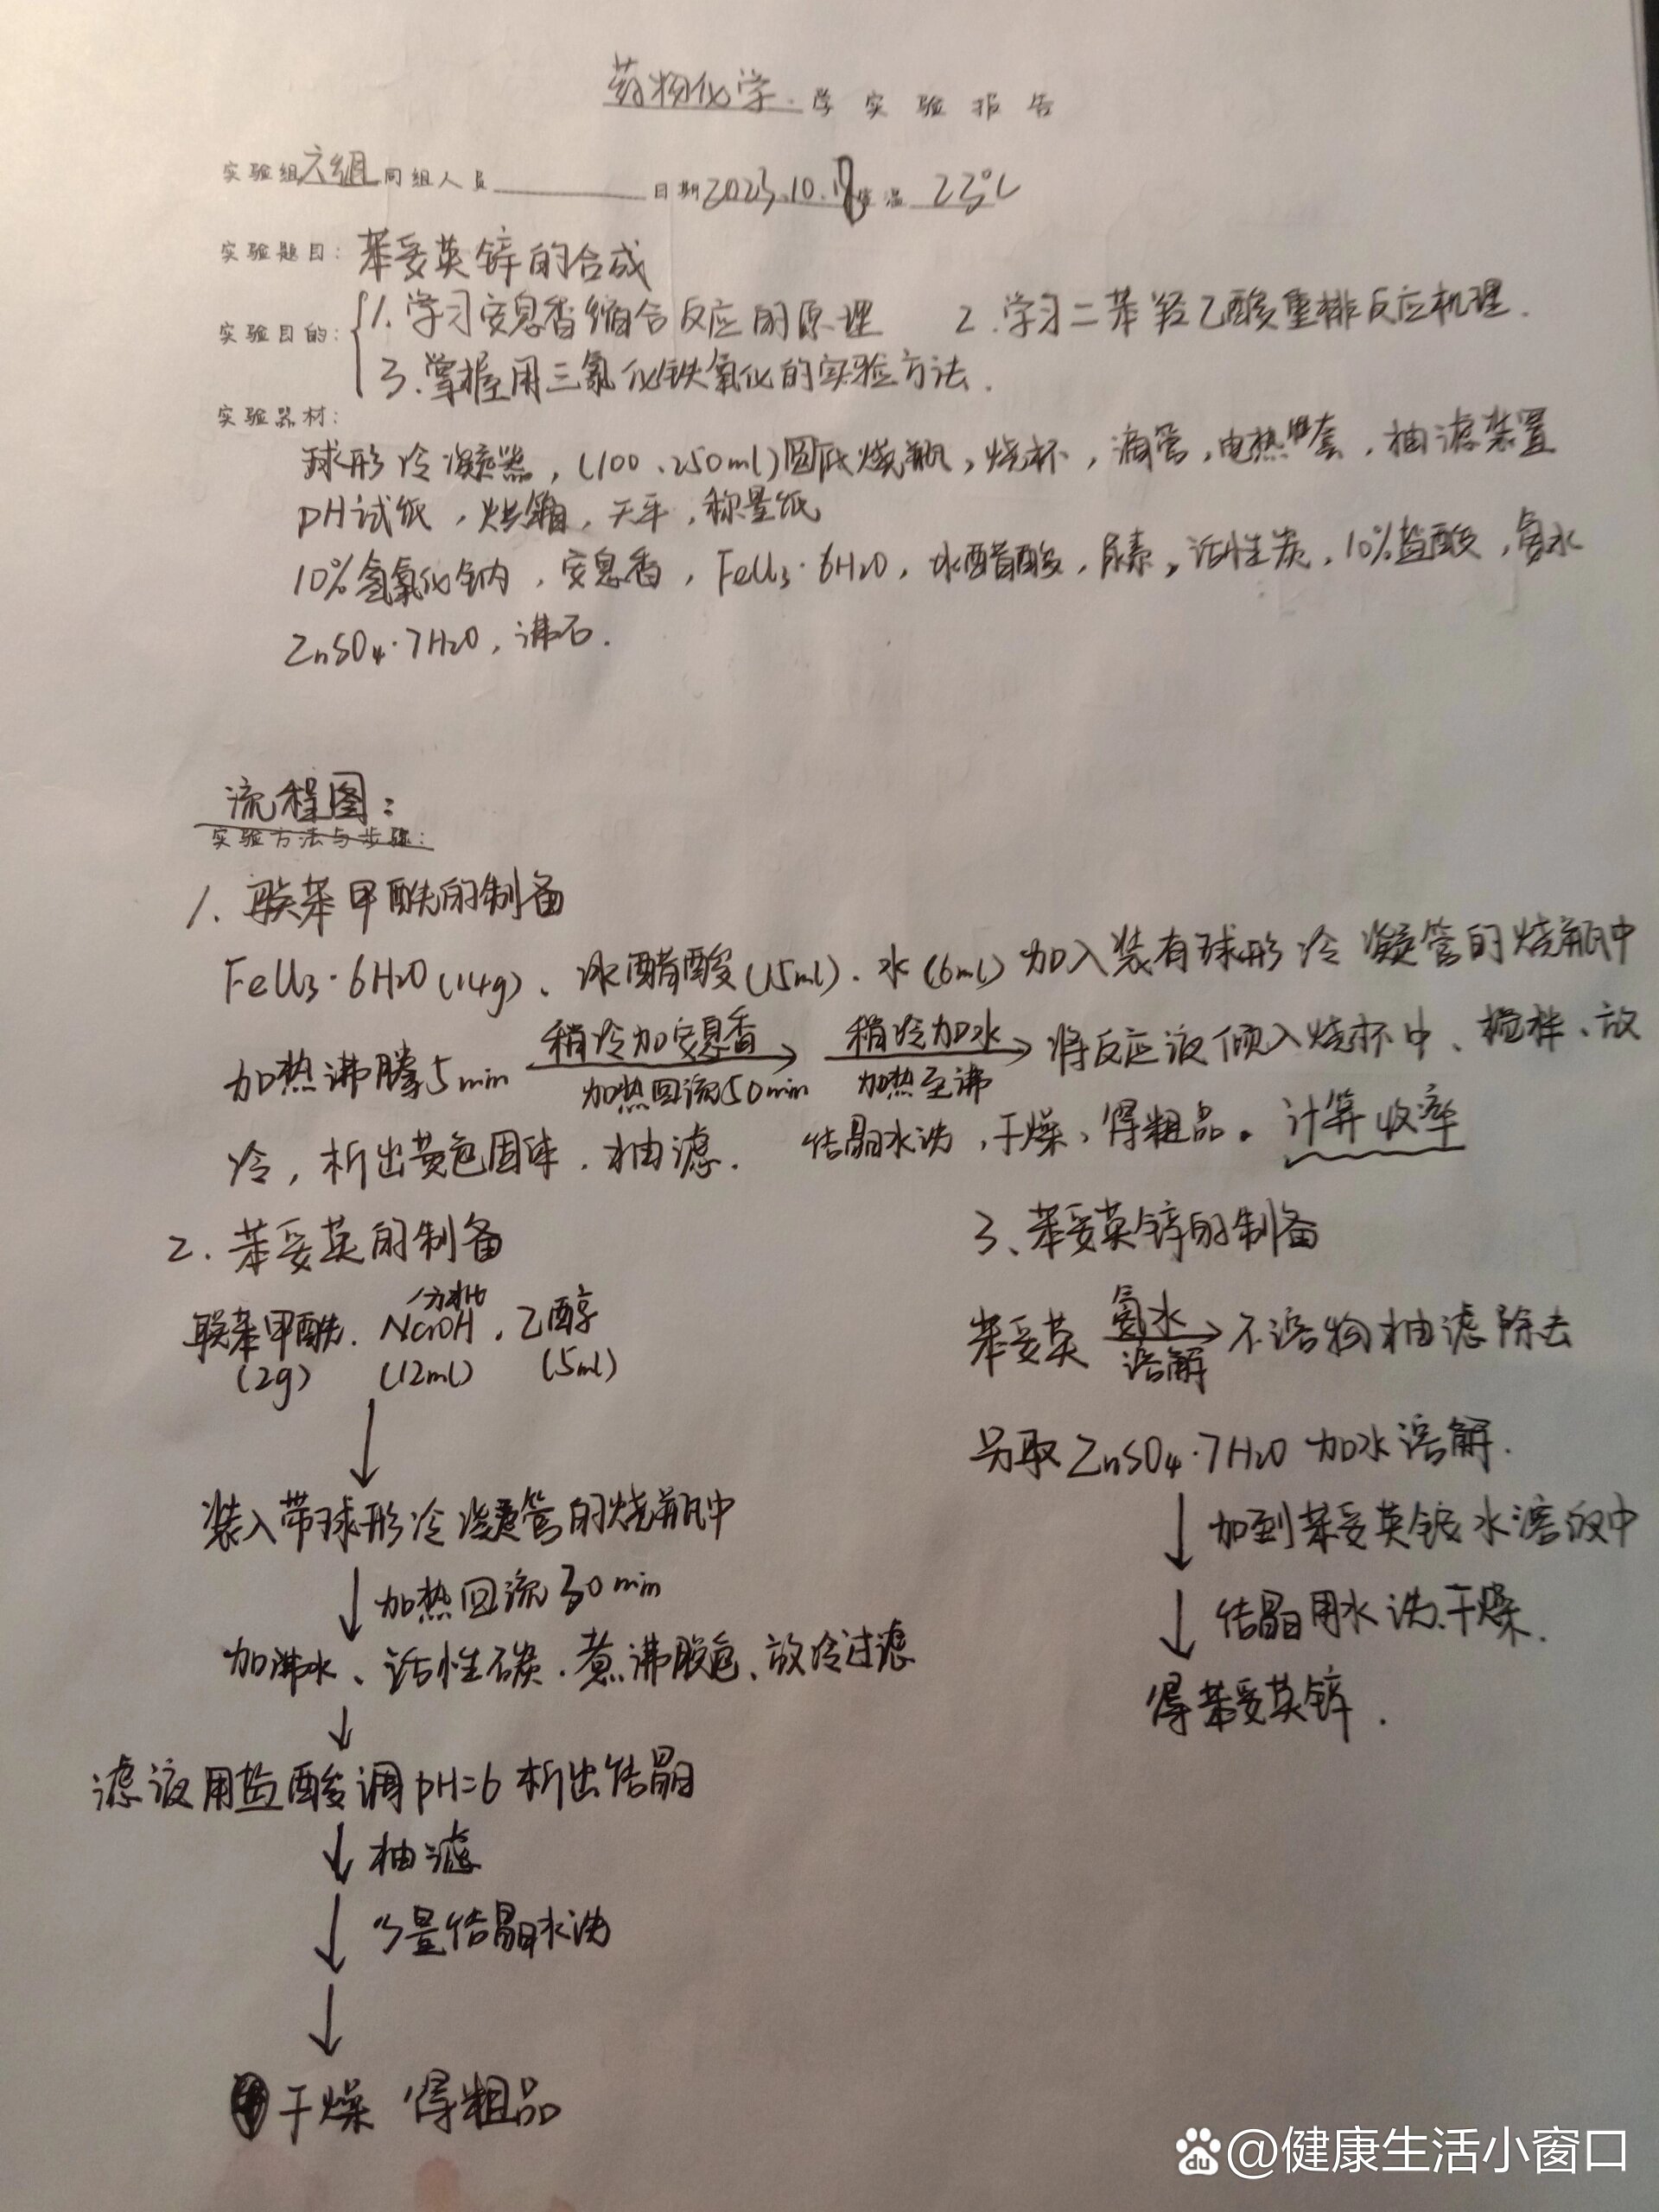 药物化学 学实验报告
实验组 六组 同组人员 日期 2023.10. 室温 23℃
实验题目: 苯妥英锌的合成
实验目的: 1.学习安息香缩合反应的原理 2.学习二苯羟乙酸重排反应机理.
3.掌握用三氯化铁氧化的实验方法.
实验器材:
球形冷凝器, (100、250ml)圆底烧瓶, 烧杯, 滴管, 电热套, 抽滤装置
pH试纸, 烘箱, 天平, 称量纸
10%氢氧化钠, 安息香, FeCl₃·6H₂O, 冰醋酸, 尿素, 活性炭, 10%盐酸, 氨水
ZnSO₄·7H₂O, 沸石.
流程图:
实验方法与步骤:
1. 联苯甲酰的制备
FeCl₃·6H₂O(14g)、冰醋酸(15ml)、水(6ml) 加入装有球形冷凝管的烧瓶中
稍冷加安息香 稍冷加水
加热沸腾5min → → 将反应液倾入烧杯中、搅拌、放
加热回流50min 加热至沸
冷, 析出黄色固体. 抽滤. 结晶水洗, 干燥, 得粗品。计算收率
2. 苯妥英的制备
联苯甲酰. NaOH. 乙醇
(2g) (12ml) (5ml)
↓
装入带球形冷凝管的烧瓶中
↓加热回流30min
加沸水、活性碳. 煮沸脱色、放冷过滤
↓
滤液用盐酸调pH=6 析出结晶
↓抽滤
↓少量结晶水洗
↓
干燥 得粗品
3、苯妥英锌的制备
氨水
苯妥英 → 不溶物抽滤除去
溶解
另取ZnSO₄·7H₂O 加水溶解.
↓加到苯妥英铵水溶液中
↓结晶用水洗.干燥.
得苯妥英锌.
du @健康生活小窗口